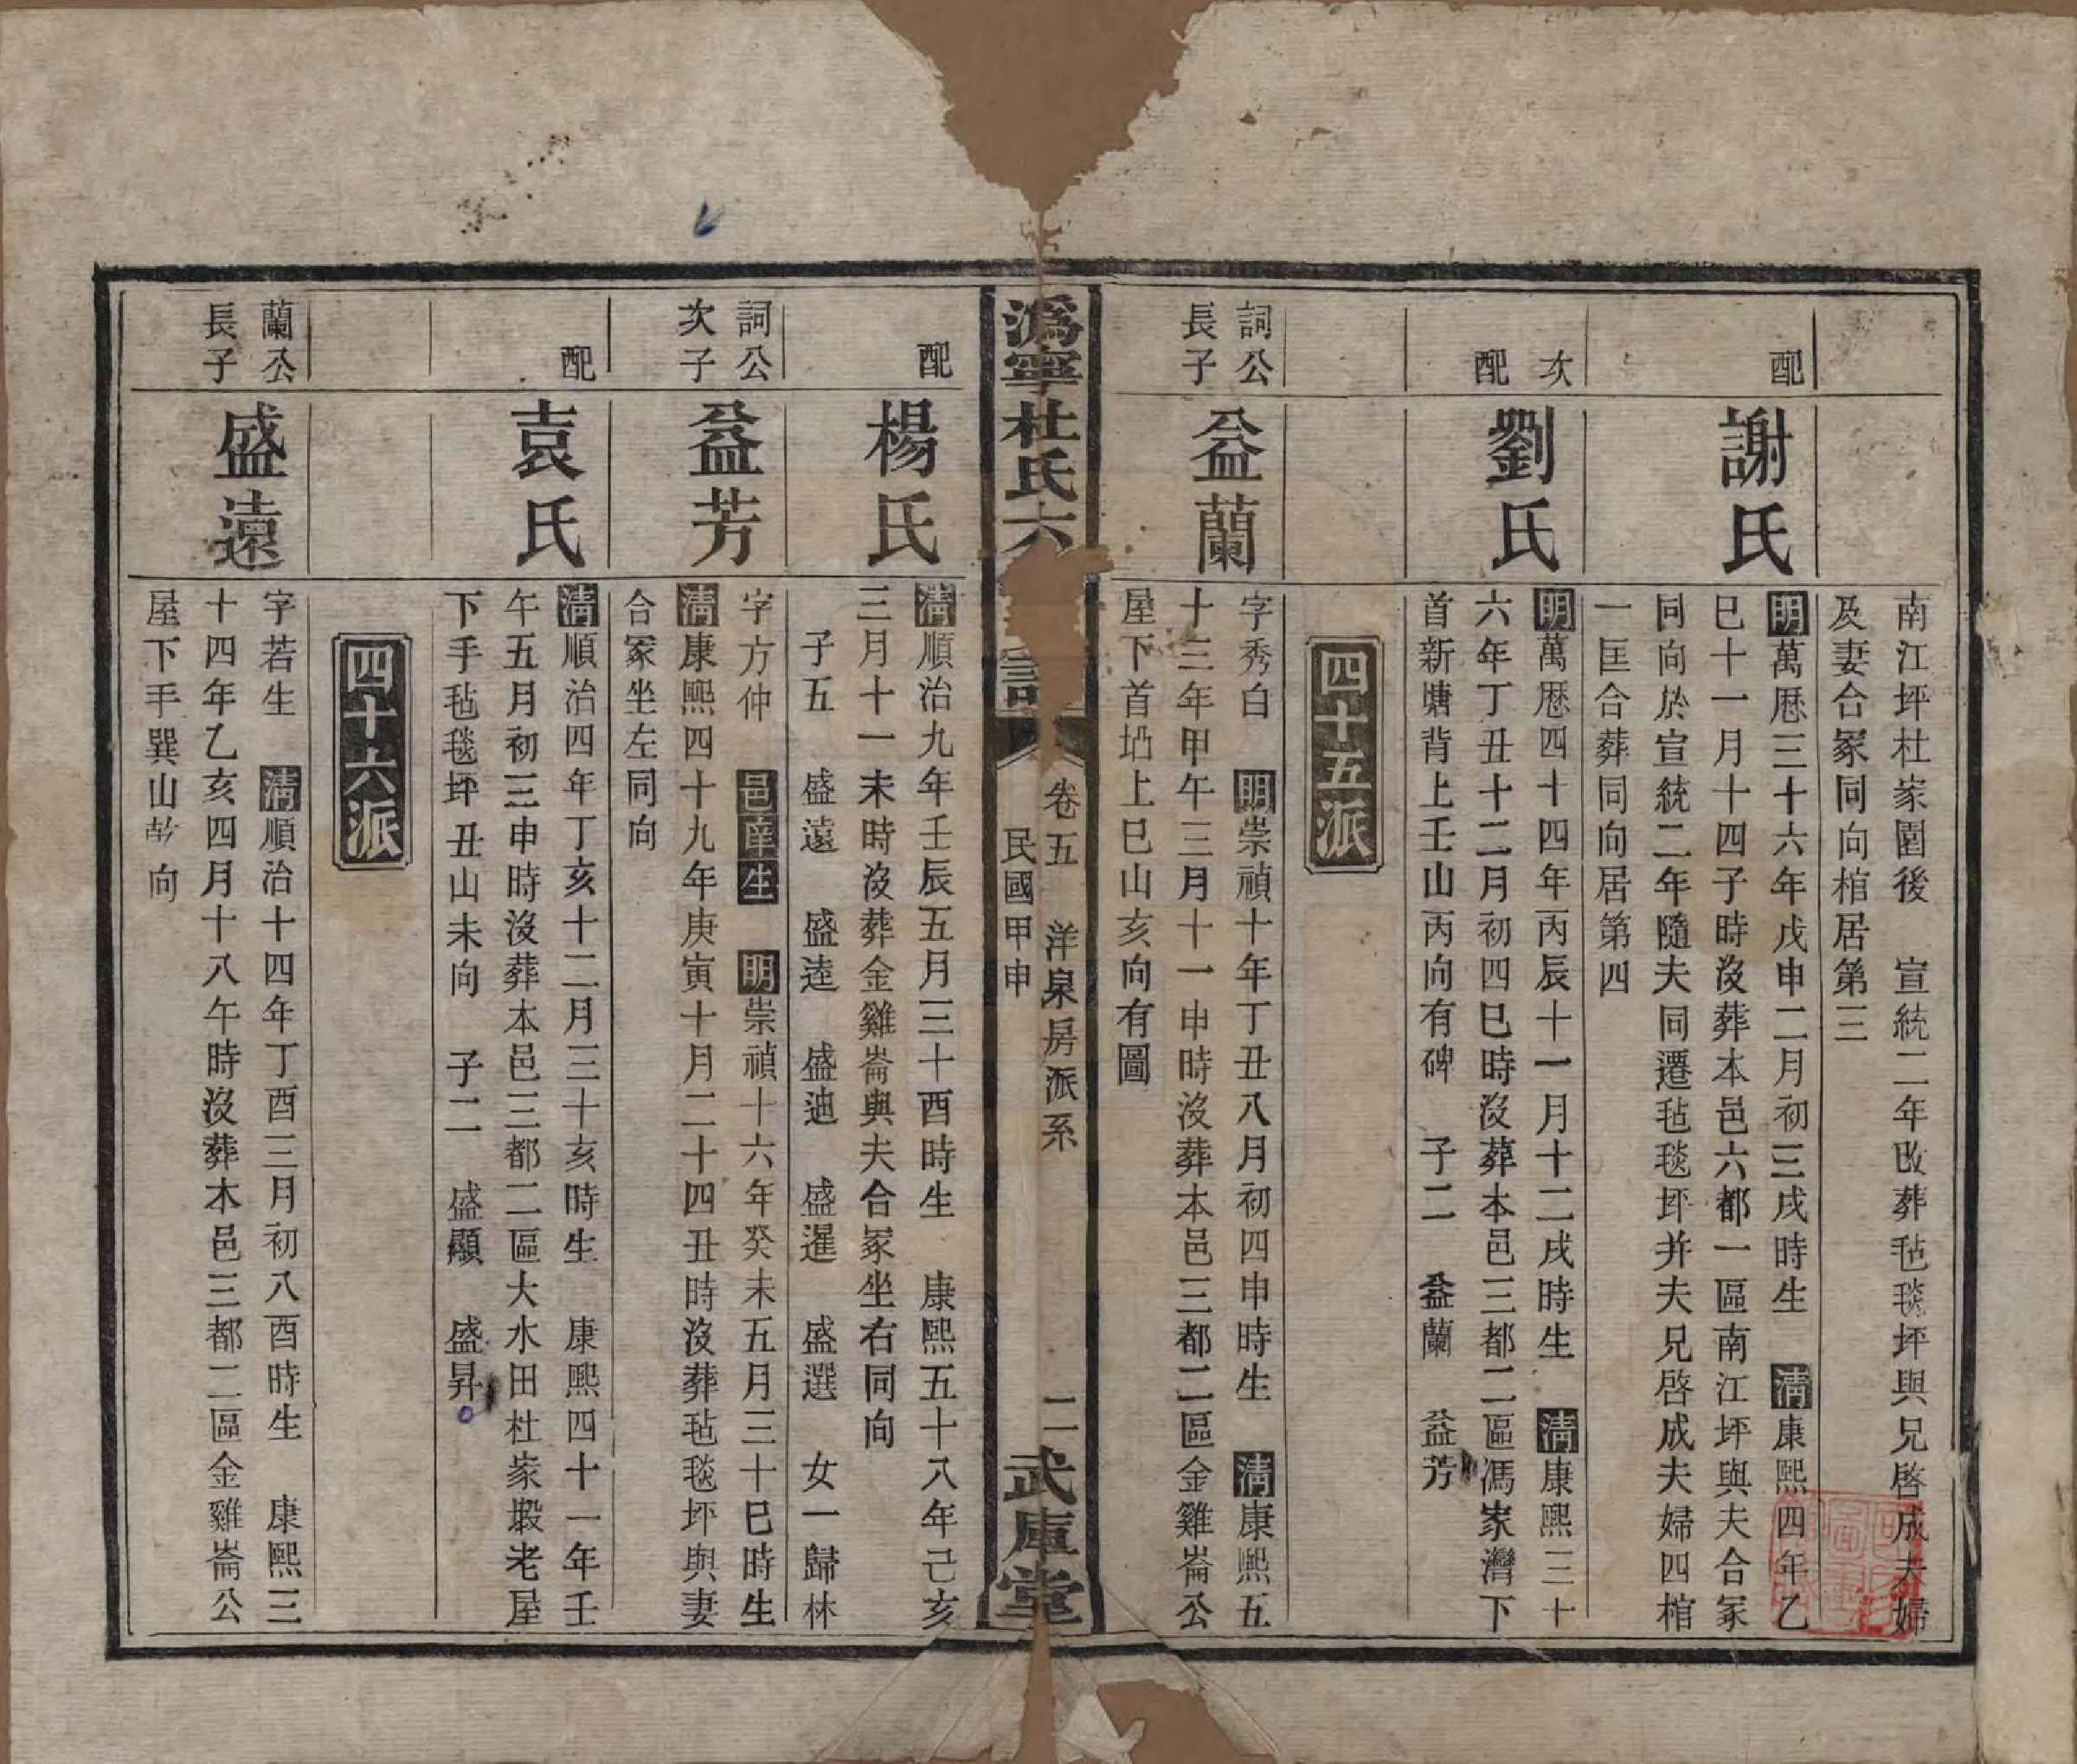 南江坪杜家園後　宣統二年改葬毡毯坪與兄啓成夫婦
及妻合冢同向棺居第三
配
謝氏
明萬歷三十六年戊申二月初三戌時生　清康熙四年乙
巳十一月十四子時沒葬本邑六都一區南江坪與夫合冢
同向於宣統二年隨夫同遷毡毯坪并夫兄啓成夫婦四棺
一匡合葬同向居第四
次配
劉氏
明萬歷四十四年丙辰十一月十二戌時生　清康熙三十
六年丁丑十二月初四巳時沒葬本邑三都二區馮家灣下
首新塘背上壬山丙向有碑　子二　益蘭　益芳
四十五派
詞公
長子
益蘭
字秀白　明崇禎十年丁丑八月初四申時生　清康熙五
十三年甲午三月十一申時沒葬本邑三都二區金雞崙公
屋下首垇上巳山亥向有圖
溈寧杜氏六
卷五　洋泉房派系
民國甲申
二
武庫堂
配
楊氏
清順治九年壬辰五月三十酉時生　康熙五十八年己亥
三月十一未時沒葬金雞崙與夫合冢坐右同向
子五　盛遠　盛逵　盛迪　盛暹　盛選　女一歸林
詞公
次子
益芳
字方仲　邑庠生　明崇禎十六年癸未五月三十巳時生
清康熙四十九年庚寅十月二十四丑時沒葬毡毯坪與妻
合冢坐左同向
配
袁氏
清順治四年丁亥十二月三十亥時生　康熙四十一年壬
午五月初三申時沒葬本邑三都二區大水田杜家塅老屋
下手毡毯坪丑山未向　子二　盛顯　盛昇
四十六派
蘭公
長子
盛遠
字若生　清順治十四年丁酉三月初八酉時生　康熙三
十四年乙亥四月十八午時沒葬本邑三都二區金雞崙公
屋下手巽山乾向